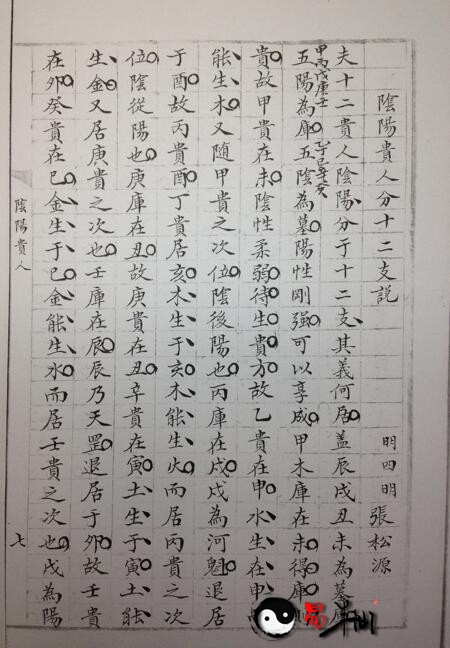 陰陽貴人分十二支說　明四明張松源
夫十二貴人陰陽分于十二支其義何居蓋辰戌丑未為墓庫
甲丙戊庚壬
五陽為庫五陰為墓陽性剛強可以享成甲木庫在未得庫則
貴故甲貴在未陰性柔弱待生貴方故乙貴在申水生在申
能生木又隨甲貴之次位陰後陽也丙庫在戌戌為河魁退居
于酉故丙貴酉丁貴居亥木生于亥木能生火而居丙貴之次
位陰從陽也庚庫在丑故庚貴在丑辛貴在寅土生于寅土能
生金又居庚貴之次也壬庫在辰辰乃天罡退居于卯故壬貴
在卯癸貴在巳金生于巳金能生水而居壬貴之次也戊為陽
陰陽貴人　七
易